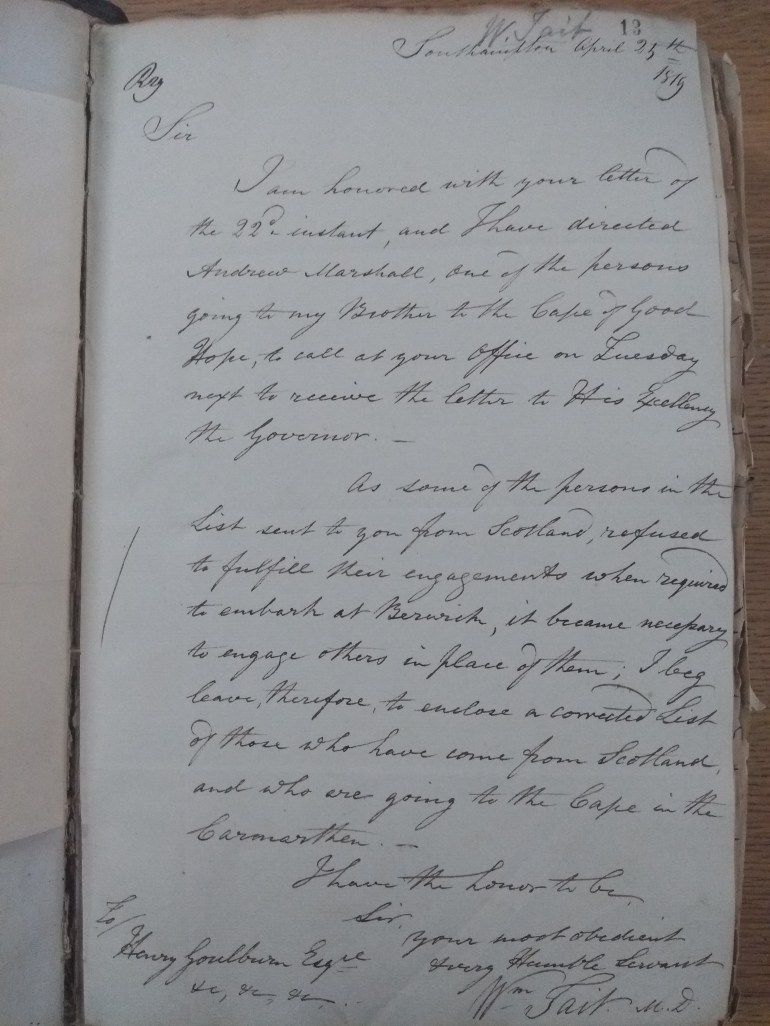 W Tait 13
Southampton April 25th
1819
Sir
I am honored with your letter of
the 22d instant, and I have directed
Andrew Marshall, one of the persons
going to my Brother to the Cape of Good
Hope, to call at your Office on Tuesday
next to receive the letter to His Excellency
the Governor. —
As some of the persons in the
List sent to you from Scotland, refused
to fulfill their engagements when required
to embark at Berwick, it became necessary
to engage others in place of them; I beg
leave, therefore, to enclose a corrected List
of those who have come from Scotland,
and who are going to the Cape in the
Carmarthen. —
I have the honor to be,
Sir,
your most obedient
& very Humble Servant
Wm Tait. M.D.
To/
Henry Goulburn Esqre
&c, &c, &c,